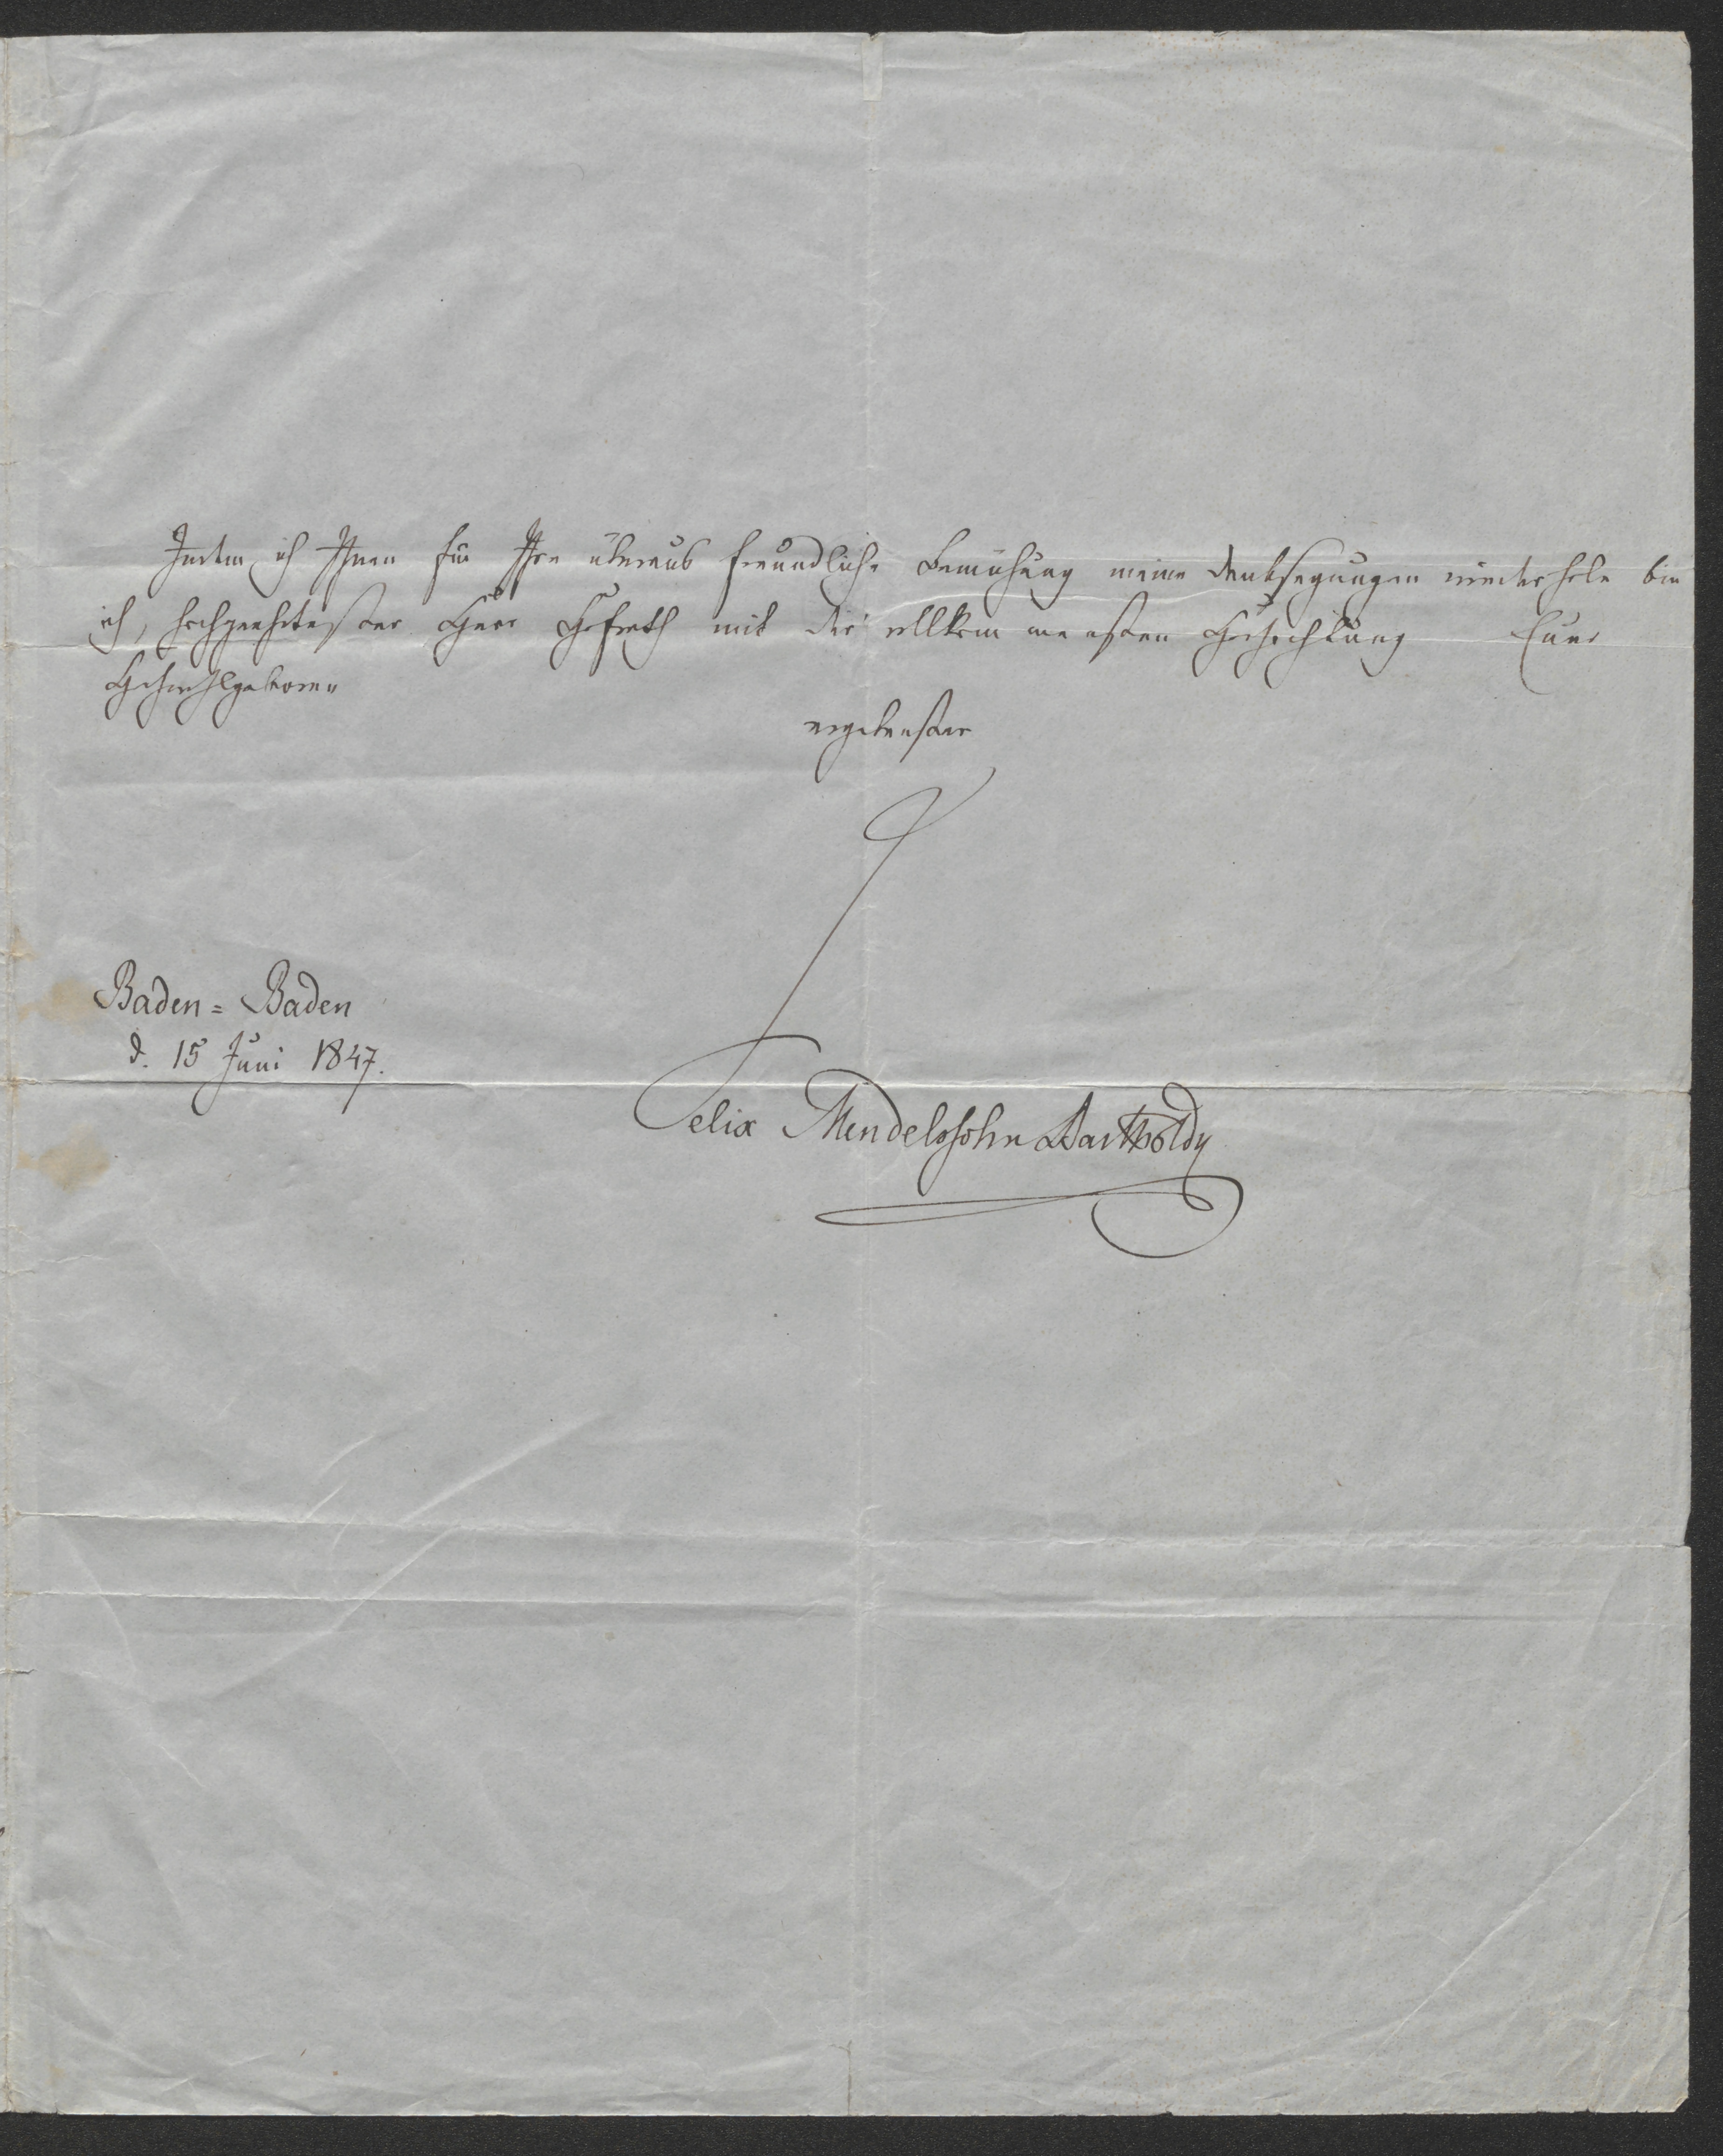 Indem ich Ihnen für Ihre überaus freundliche Bemühung meine Danksagungen wiederhole bin
ich, hochgeehrtester Herr Hofrath mit der vollkommensten Hochachtung Euer
Hochwohlgeboren
ergebenster
Baden=Baden
d. 15 Juni 1847.
Felix Mendelssohn Bartholdy